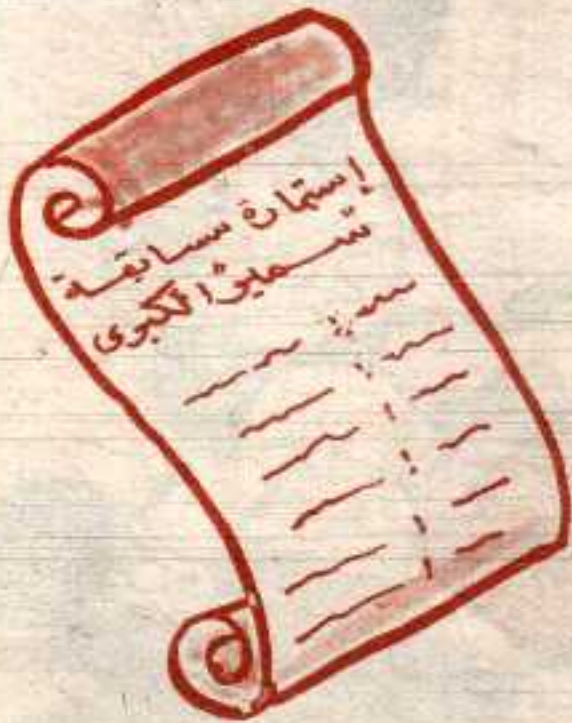 إستمارة مسابقة
"سمير" الكبرى